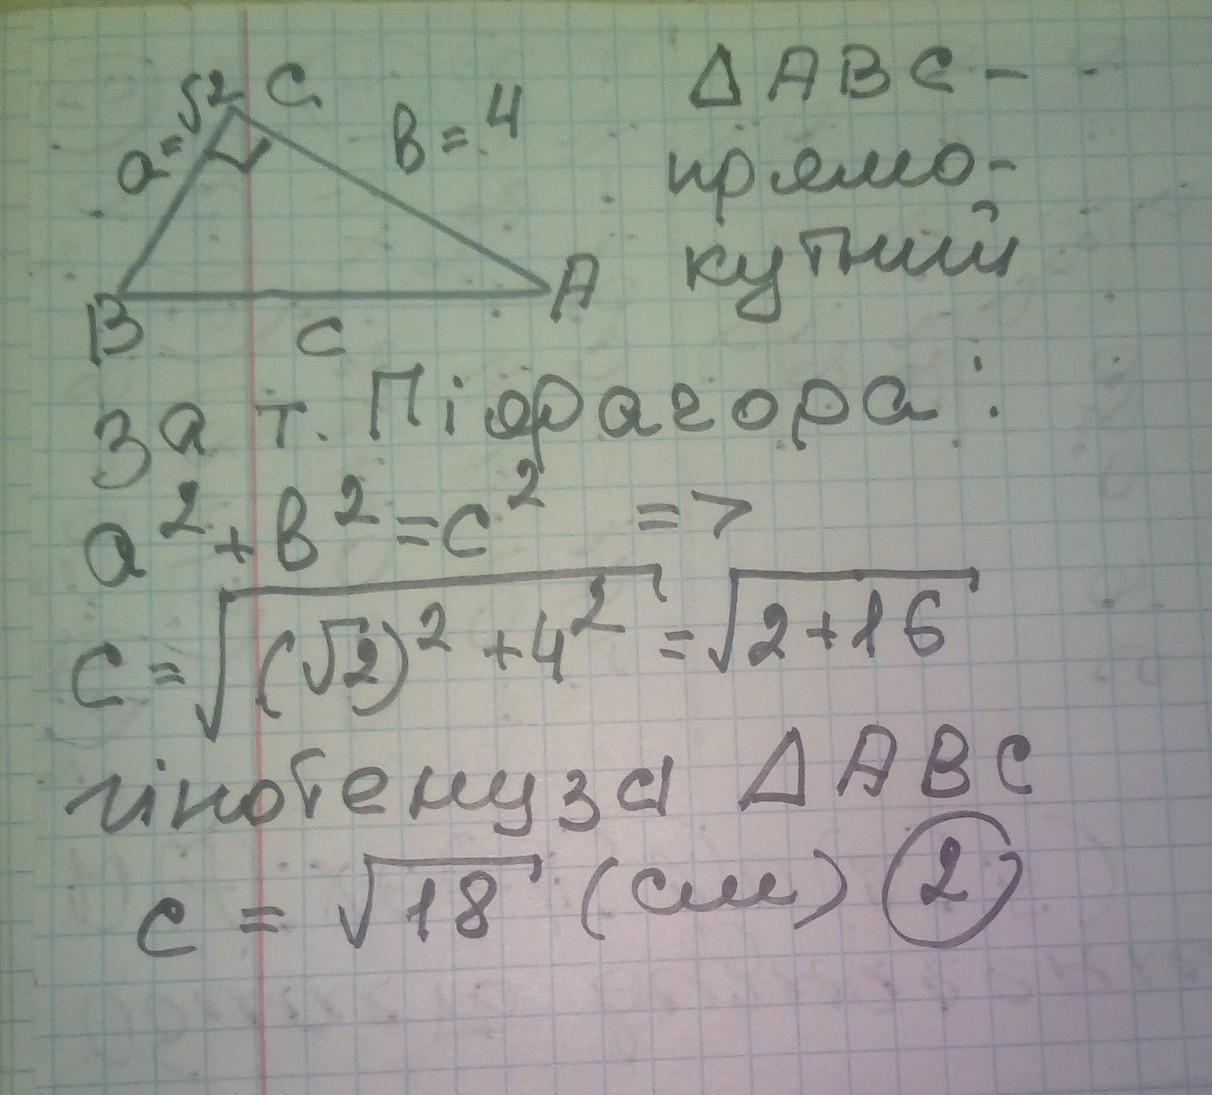 a=√2 C
b=4
B
c
A
ΔABC-
прямо-
кутний
За т. Піфрагора:
a²+b²=c² =>
c=√((√2)²+4²)=√(2+16)
гіпотенуза ΔABC
c=√18 (см) 2